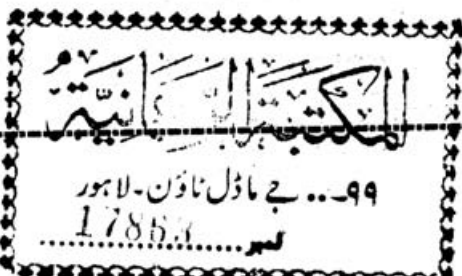 المكتبة الرحمانية
۹۹... جے ماڈل ٹاؤن۔لاہور
نمبر 17863